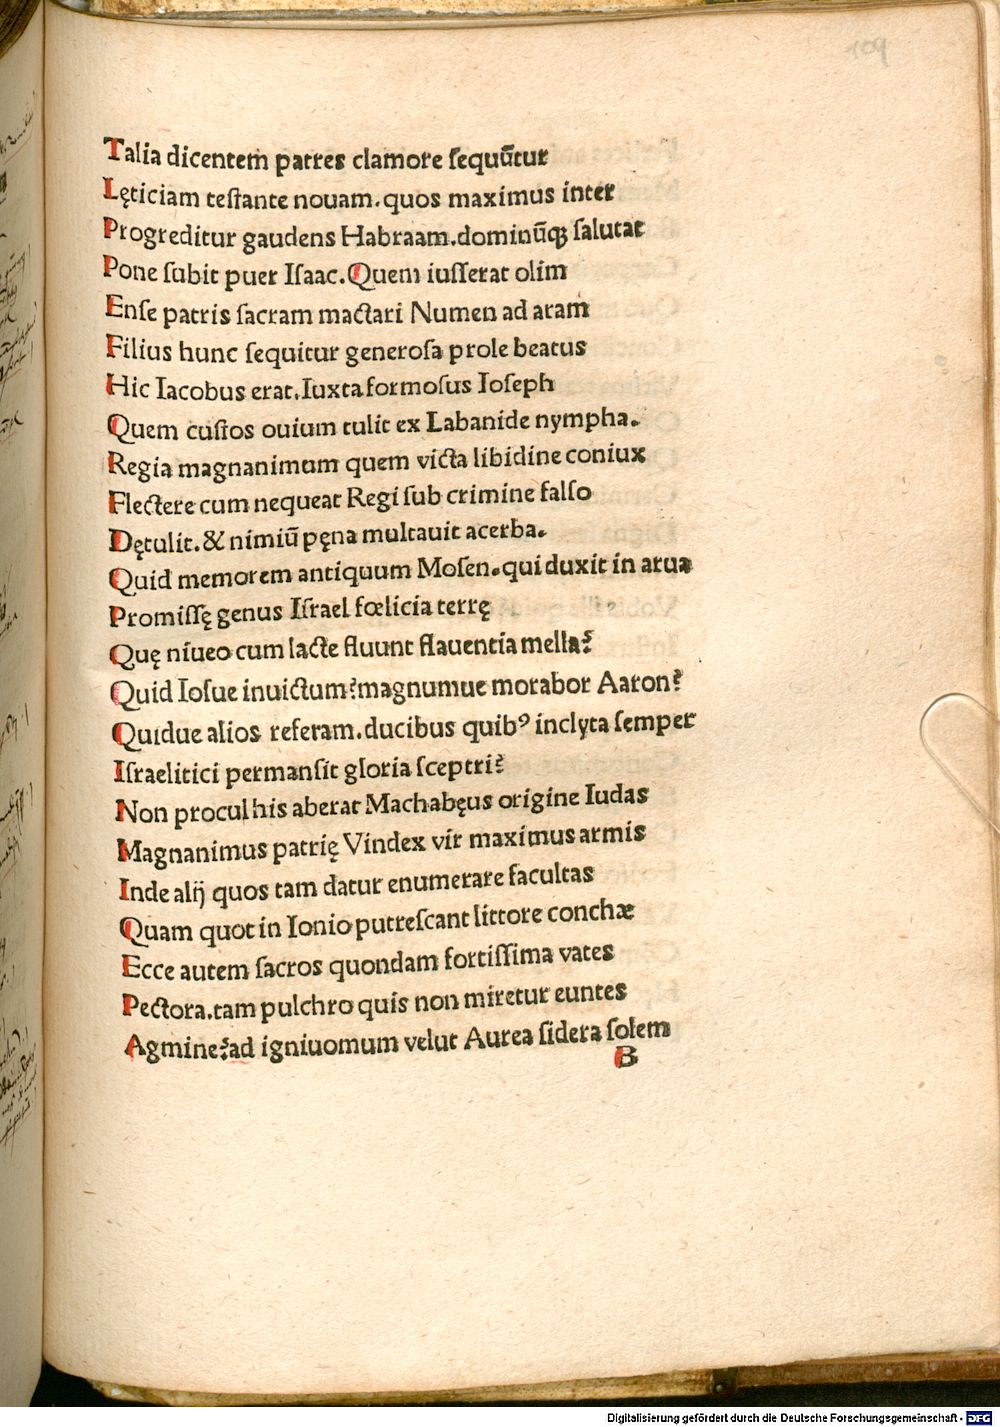 109
Talia dicentem patres clamore ſequūtur
Lęticiam teſtante nouam. quos maximus inter
Progreditur gaudens Habraam. dominūqꝫ ſalutat
Pone ſubit puer Iſaac. Quem iuſſerat olim
Enſe patris ſacram mactari Numen ad aram
Filius hunc ſequitur generoſa prole beatus
Hic Iacobus erat. Iuxta formoſus Ioſeph
Quem cuſtos ouium tulit ex Labanide nympha.
Regia magnanimum quem victa libidine coniux
Flectere cum nequeat Regi ſub crimine falſo
Dętulit. & nimiū pęna multauit acerba.
Quid memorem antiquum Moſen. qui duxit in arua
Promiſſę genus Iſrael fœlicia terrę
Quę niueo cum lacte fluunt flauentia mella?
Quid Ioſue inuictum? magnumue morabor Aaron?
Quidue alios referam. ducibus quibꝰ inclyta ſemper
Iſraelitici permanſit gloria ſceptri?
Non procul his aberat Machabęus origine Iudas
Magnanimus patrię Vindex vir maximus armis
Inde alij quos tam datur enumerare facultas
Quam quot in Ionio putreſcant littore conchæ
Ecce autem ſacros quondam fortiſſima vates
Pectora. tam pulchro quis non miretur euntes
Agmine? ad igniuomum velut Aurea ſidera ſolem
B
Digitalisierung gefördert durch die Deutsche Forschungsgemeinschaft - DFG